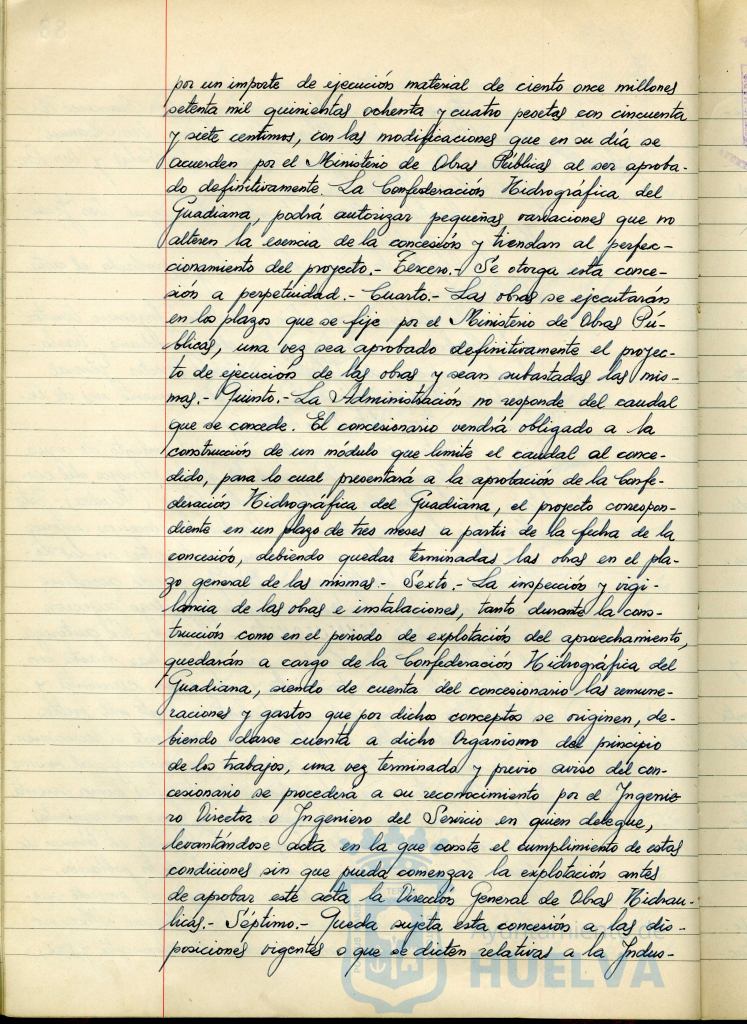 por un importe de ejecución material de ciento once millones
setenta mil quinientas ochenta y cuatro pesetas con cincuenta
y siete centimos, con las modificaciones que en su día se
acuerden por el Ministerio de Obras Públicas al ser aproba-
do definitivamente. La Confederación Hidrográfica del
Guadiana, podrá autorizar pequeñas variaciones que no
alteren la esencia de la concesión y tiendan al perfec-
cionamiento del proyecto.- Tercero.- Se otorga esta conce-
sión a perpetuidad.- Cuarto.- Las obras se ejecutarán
en los plazos que se fije por el Ministerio de Obras Pú-
blicas, una vez sea aprobado definitivamente el proyec-
to de ejecución de las obras y sean subastadas las mis-
mas.- Quinto.- La Administración no responde del caudal
que se concede. El concesionario vendrá obligado a la
construcción de un módulo que limite el caudal al conce-
dido, para lo cual presentará a la aprobación de la Confe-
deración Hidrográfica del Guadiana, el proyecto correspon-
diente en un plazo de tres meses a partir de la fecha de la
concesión, debiendo quedar terminadas las obras en el pla-
zo general de las mismas.- Sexto.- La inspección y vigi-
lancia de las obras e instalaciones, tanto durante la cons-
trucción como en el periodo de explotación del aprovechamiento,
quedarán a cargo de la Confederación Hidrográfica del
Guadiana, siendo de cuenta del concesionario las remune-
raciones y gastos que por dichos conceptos se originen, de-
biendo darse cuenta a dicho Organismo del principio
de los trabajos, una vez terminado y previo aviso del con-
cesionario se procederá a su reconocimiento por el Ingenie-
ro Director o Ingeniero del Servicio en quien delegue,
levantándose acta en la que conste el cumplimiento de estas
condiciones sin que pueda comenzar la explotación antes
de aprobar este acta la Dirección General de Obras Hidrau-
licas.- Séptimo.- Queda sujeta esta concesión a las dis-
posiciones vigentes o que se dicten relativas a la Indus-
Ayuntamiento de
HUELVA